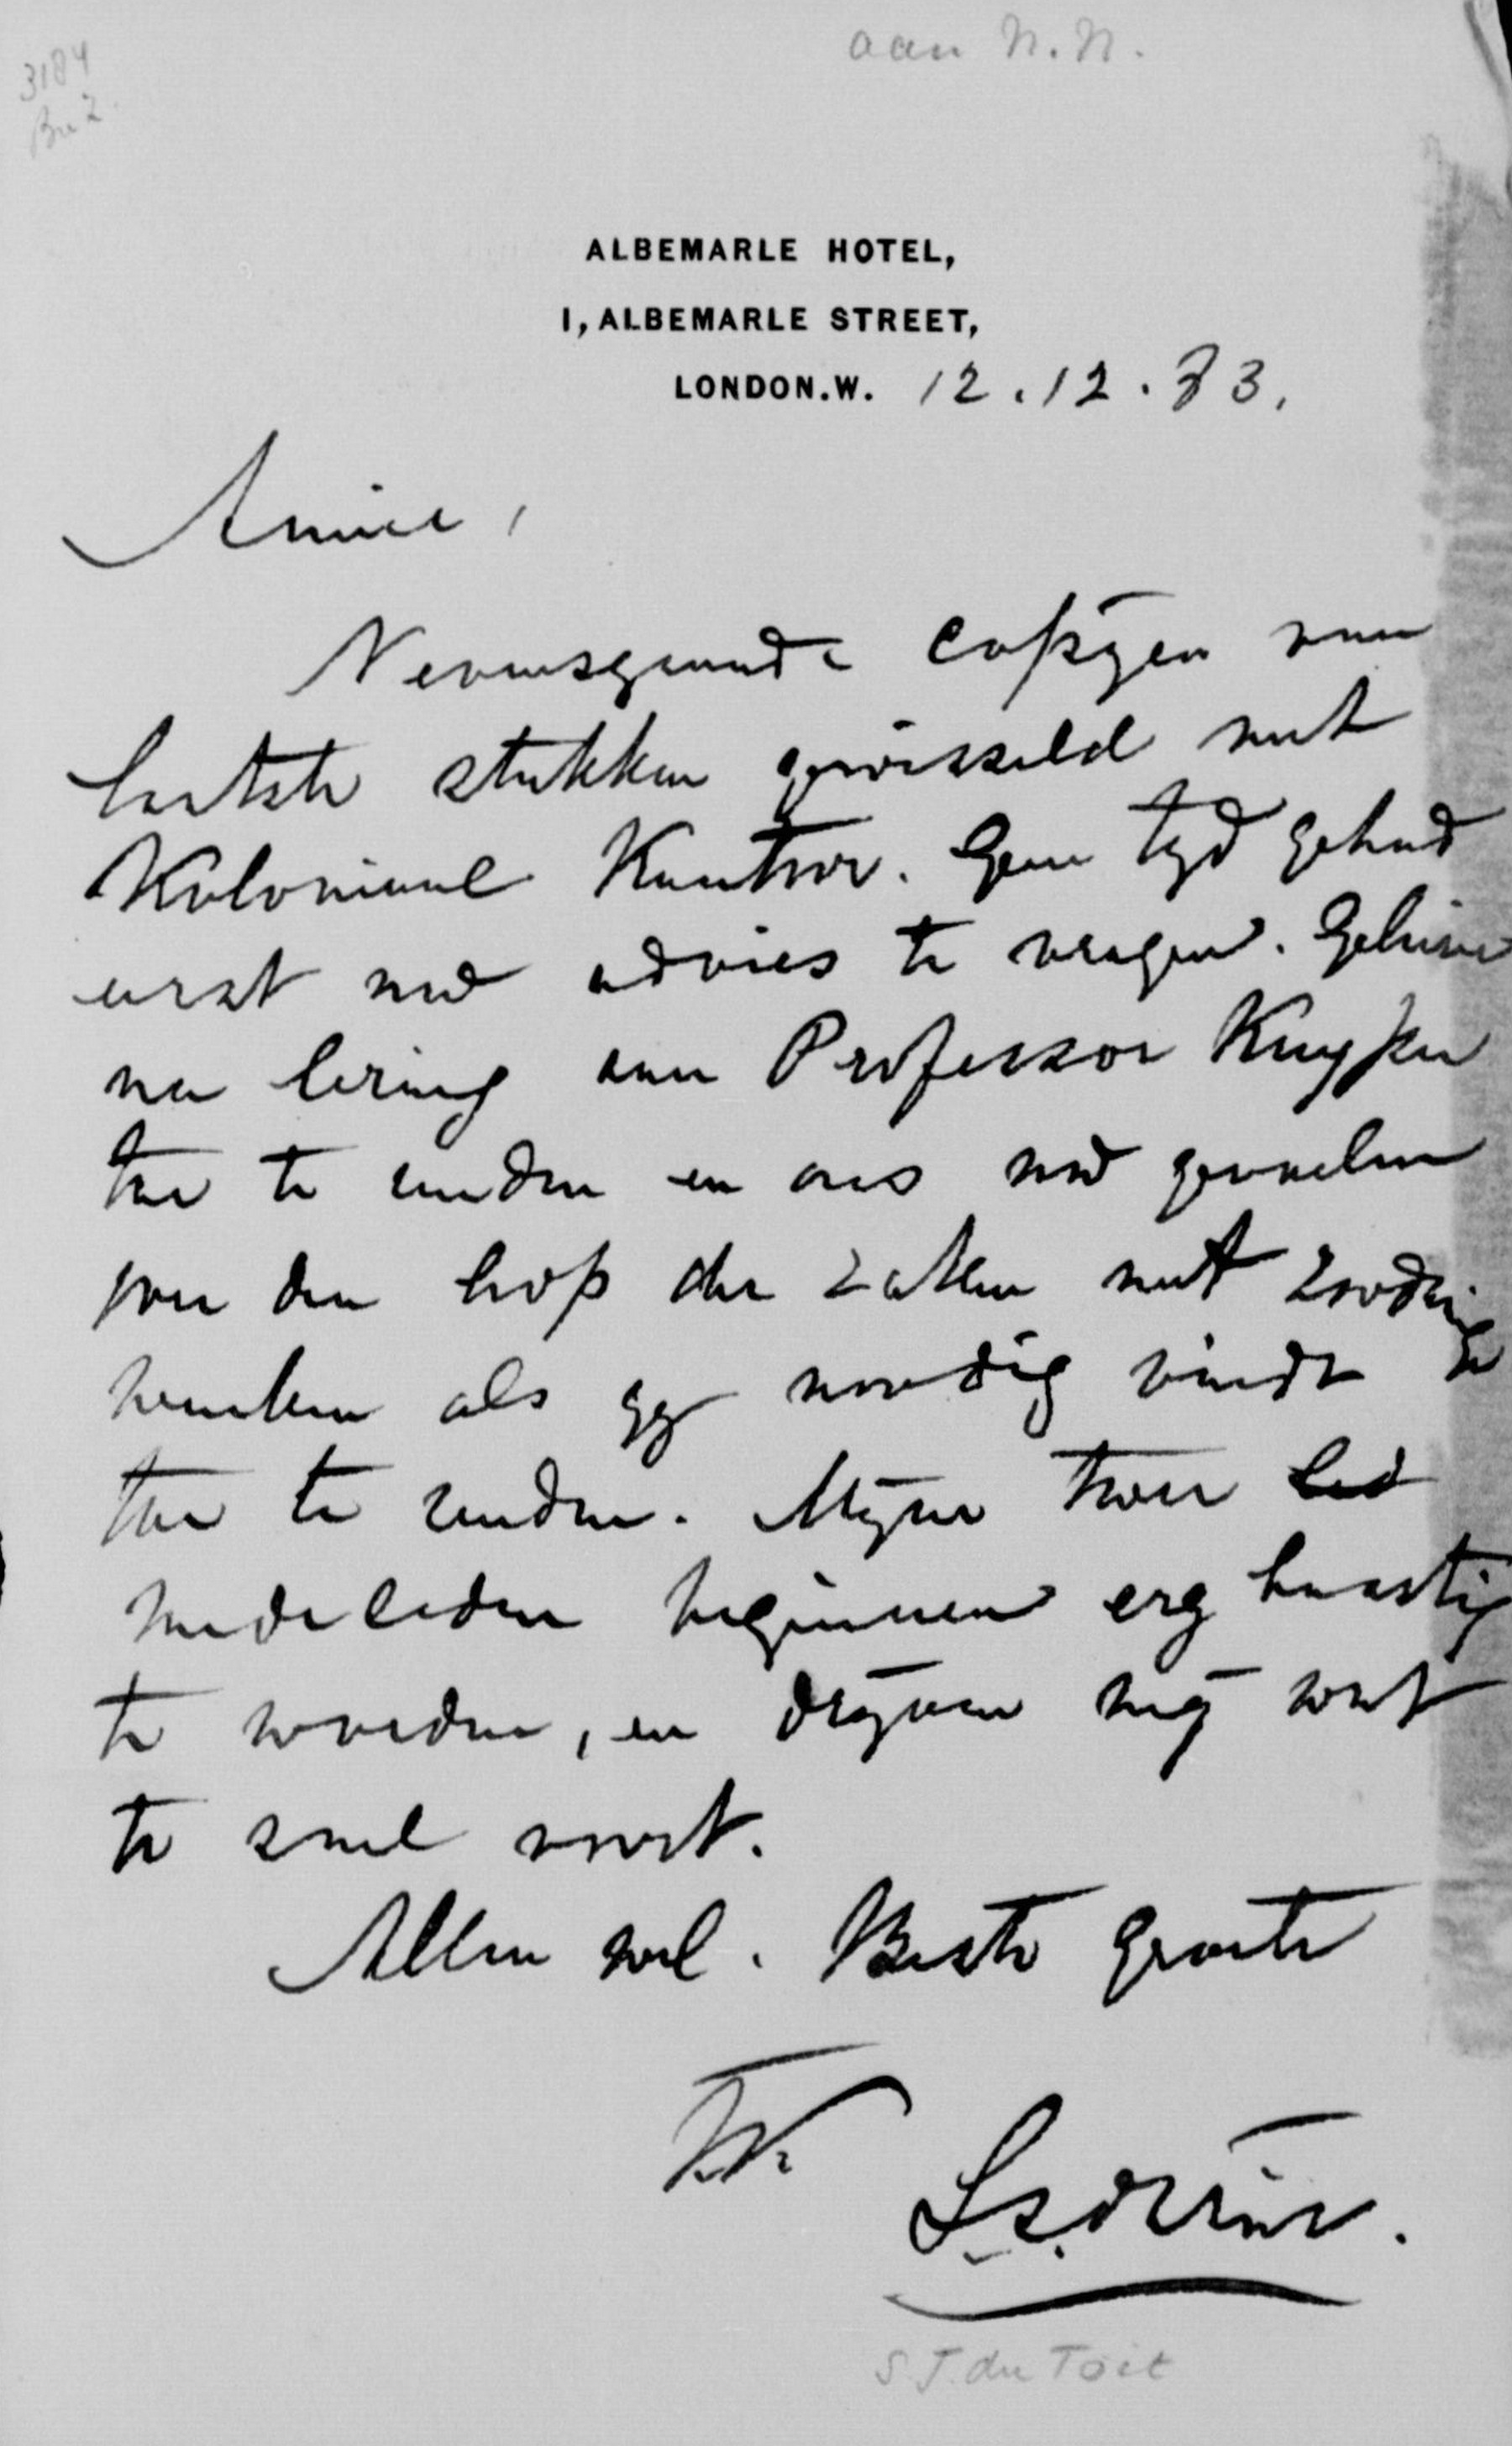 aan N.N.
3184
Bu 2.
ALBEMARLE HOTEL,
1, ALBEMARLE STREET,
LONDON.W. 12.12.83.
Amice,
Nevensgaande copyen van
laatste stukken gewisseld met
Koloniaal Kantoor. Geen tyd gehad
eerst uw advies te vragen. Gelieve
na lezing aan Professor Kuyper
toe te zenden en ons uw gevoelen
over den loop der zaken met zoodanige
wenken als gy noodig vindt
toe te zenden. Myne twee led
medeleden beginnen erg haastig
te worden, en dryven my wat
te snel voort.
Allen wel. Beste groete
tt.
SJduToit.
S J. du Toit